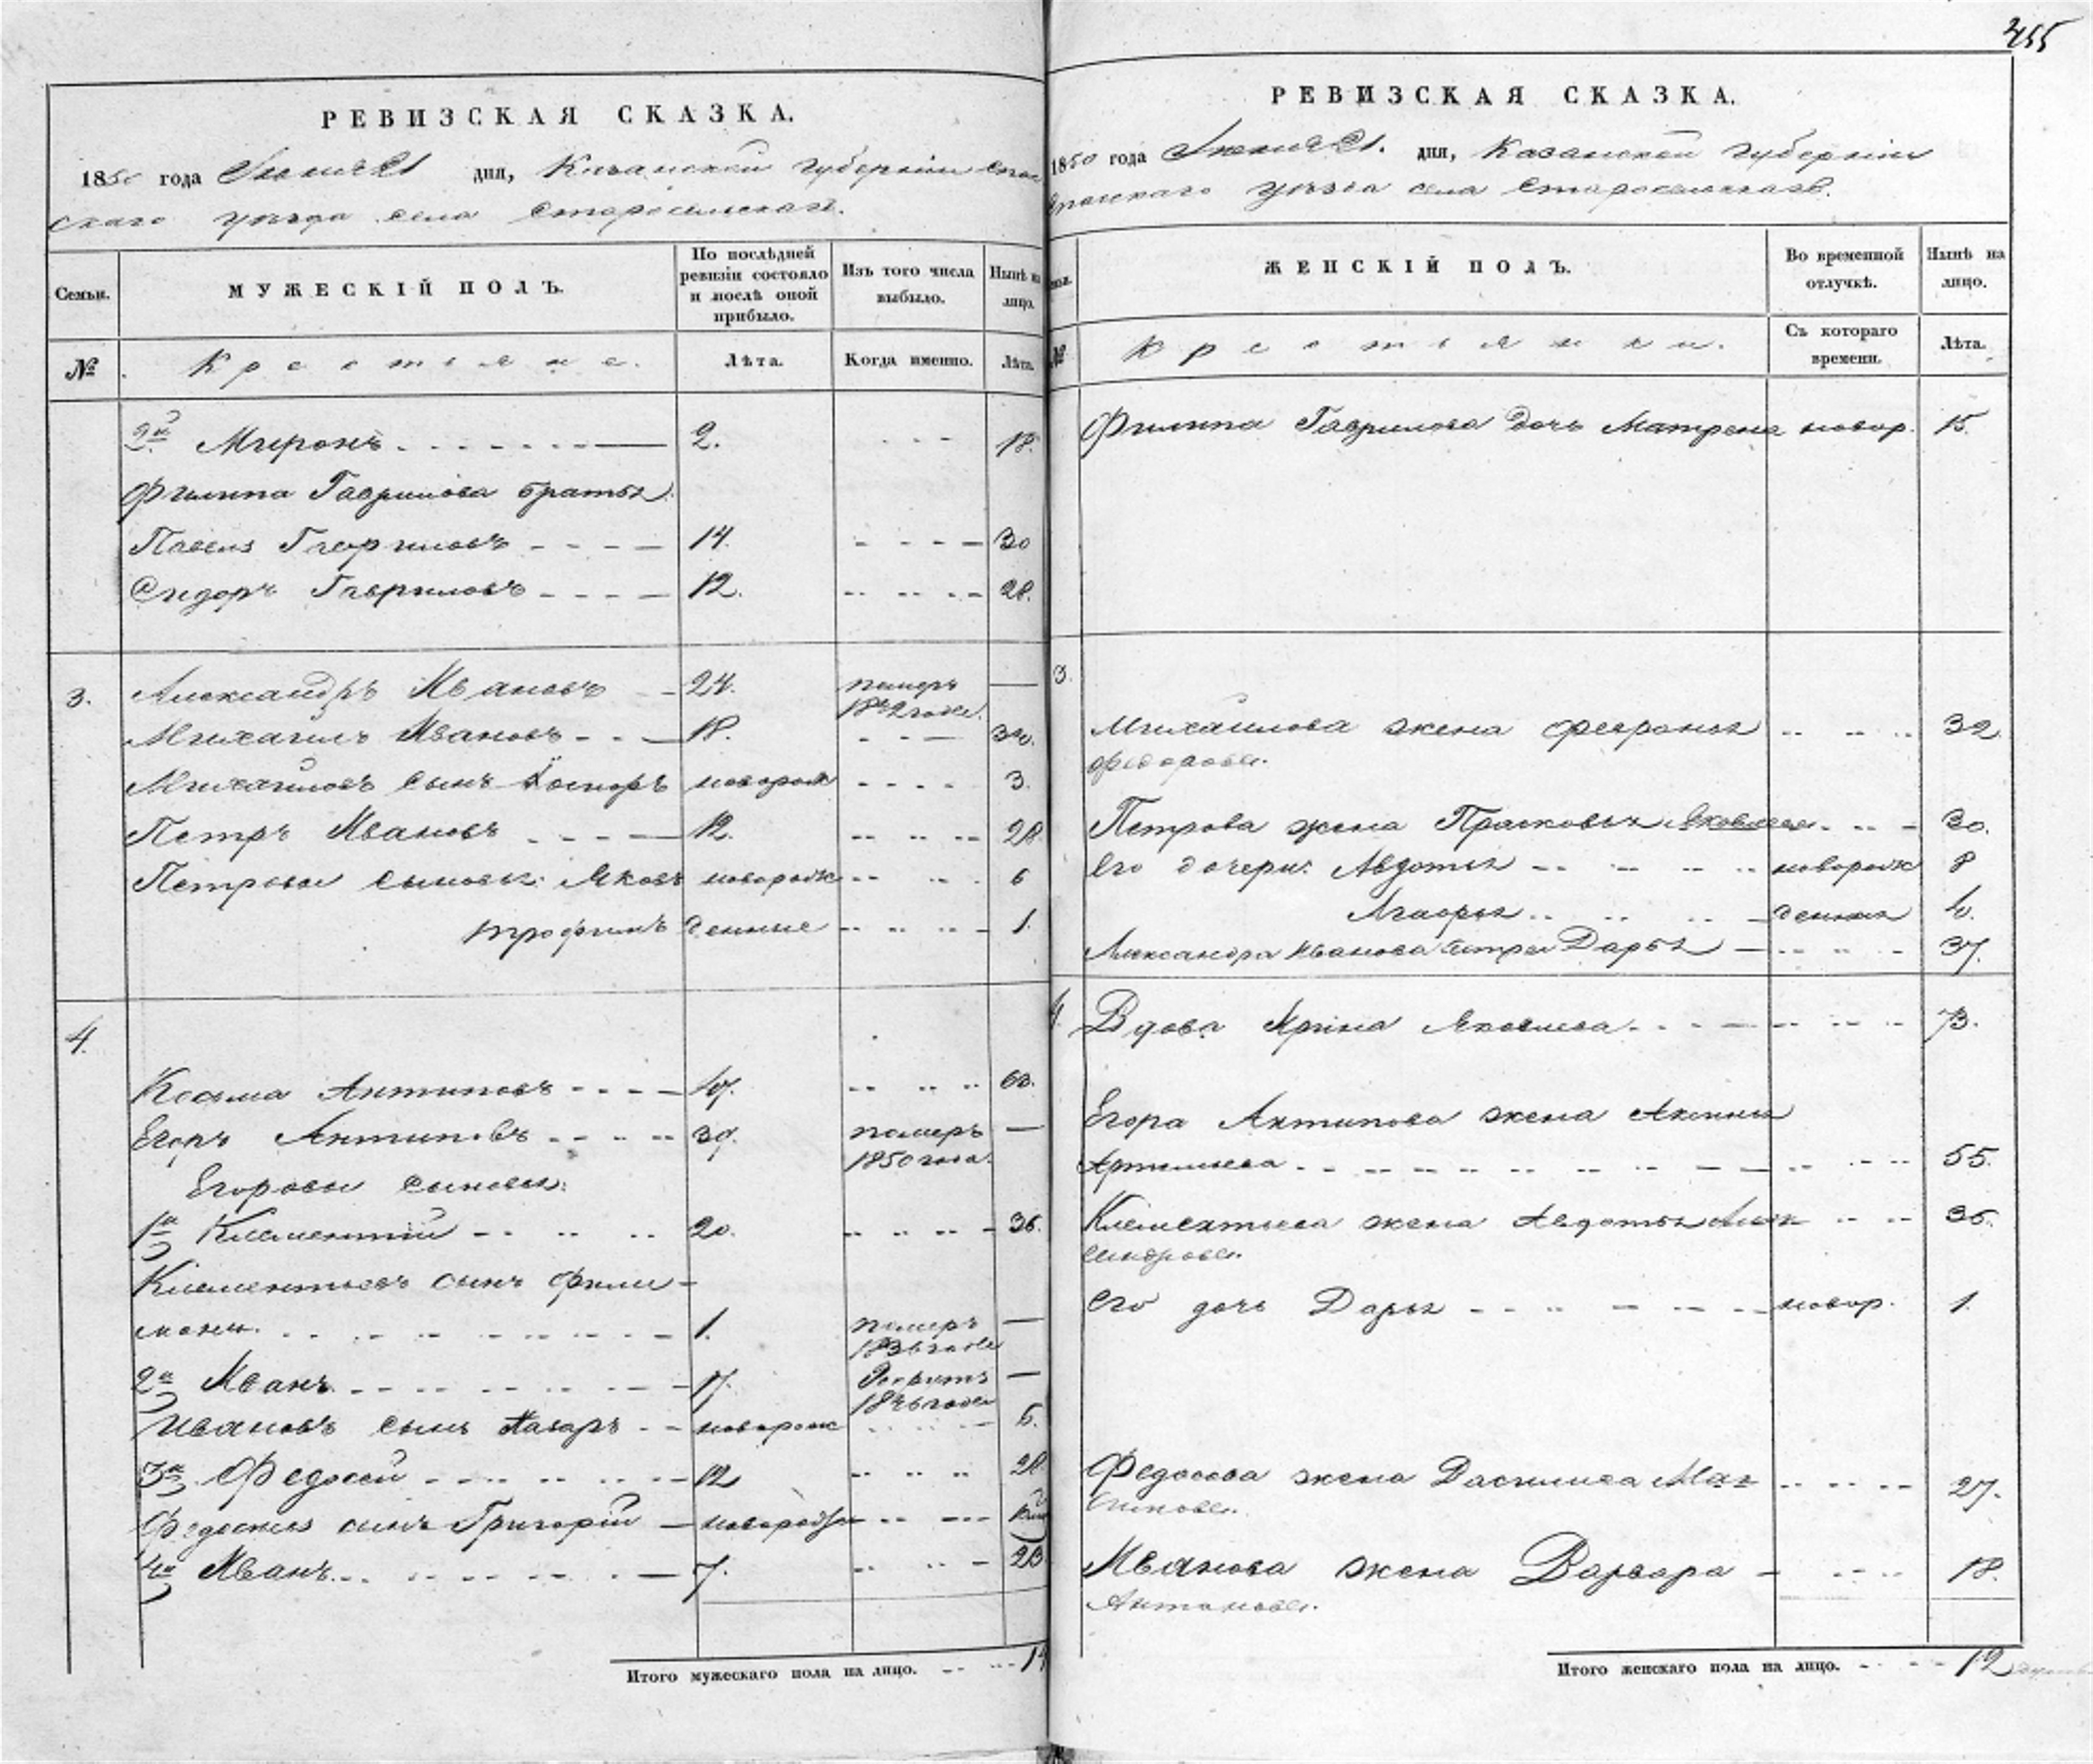 455
РЕВИЗСКАЯ СКАЗКА.
1850 года дня, Казанской губерніи Спас
скаго уѣзда села Старосельскаго.
Семьи.
МУЖЕСКІЙ ПОЛЪ.
По послѣдней ревизіи состояло и послѣ оной прибыло.
Изъ того числа выбыло.
Нынѣ на лицо.
№
Крестьяне.
Лѣта.
Когда именно.
Лѣта.
2й Миронъ 2. 18.
Филипа Гаврилова братья
Павелъ Гавриловъ 14. 30
Сидоръ Гавриловъ 12. 28.
3. Александръ Ивановъ 24. померъ
1842 года.
Михаилъ Ивановъ 18. 34.
Михайловъ сынъ новорож 3.
Петръ Ивановъ 12. 28.
Петровы сыновья: Яковъ новорож 6
трофимъ денные 1.
4.
Косьма Антиповъ 47. 63.
Егоръ Антиповъ 39. померъ
1850 года.
Егоровы сыновья:
1й Климентій 20. 36.
Климентьевъ сынъ Фили-
монъ. 1. померъ
1836 года
2й Иванъ 17. Рекрутъ
1846 года
Ивановъ сынъ Назаръ новорож 5.
3й Федосей 12 28.
Федосѣевъ сынъ Григорій новорож
4й Иванъ 7. 23
Итого мужескаго пола на лицо. 14
РЕВИЗСКАЯ СКАЗКА.
1850 года дня, Казанской губерніи
Спаскаго уѣзда села Старосельскаго.
ЖЕНСКІЙ ПОЛЪ.
Во временной отлучкѣ.
Нынѣ на лицо.
№
Крестьянки.
Съ котораго времени.
Лѣта.
Филипа Гаврилова дочь Матрена новор. 15.
3.
Михайлова жена Февронья 32.
Федорова.
Петрова жена Прасковья Яковлева 30.
Его дочери: Авдотья новорож 8
денныя
Александра Иванова сестра Дарья 37.
4. Вдова Ирина Яковлева 73.
Егора Антипова жена Аксинья
Артемьева 55.
Климентьева жена Авдотья Алек 36.
сандрова.
Его дочь Дарья новор. 1.
Федосева жена Василиса Мак 27.
симова.
Иванова жена Варвара 18.
Антонова.
Итого женскаго пола на лицо. 12